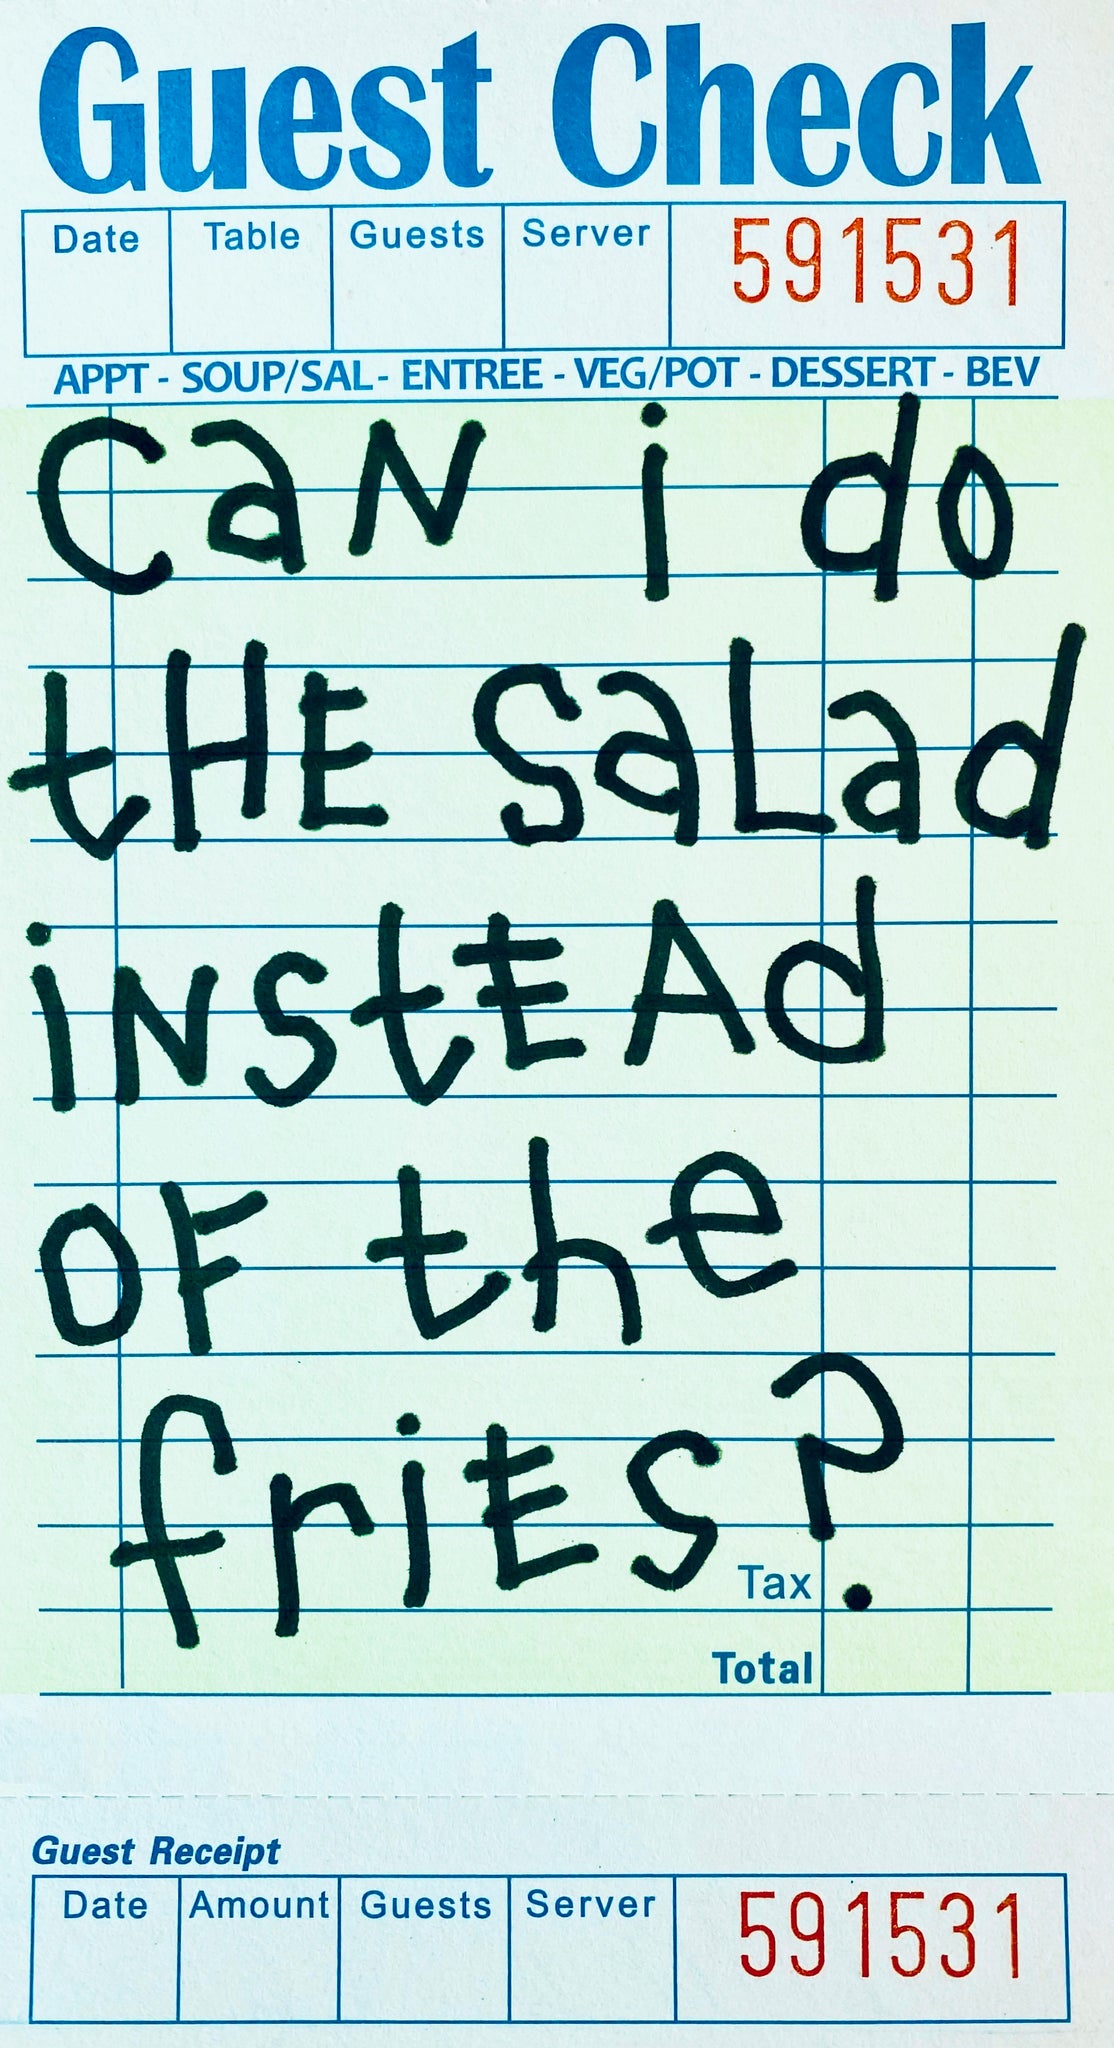 Guest Check
Date Table Guests Server 591531
APPT - SOUP/SAL - ENTREE - VEG/POT - DESSERT - BEV
CaN i do
tHE SaLad
iNStEAd
OF the
friES?
Tax
Total
Guest Receipt
Date Amount Guests Server 591531